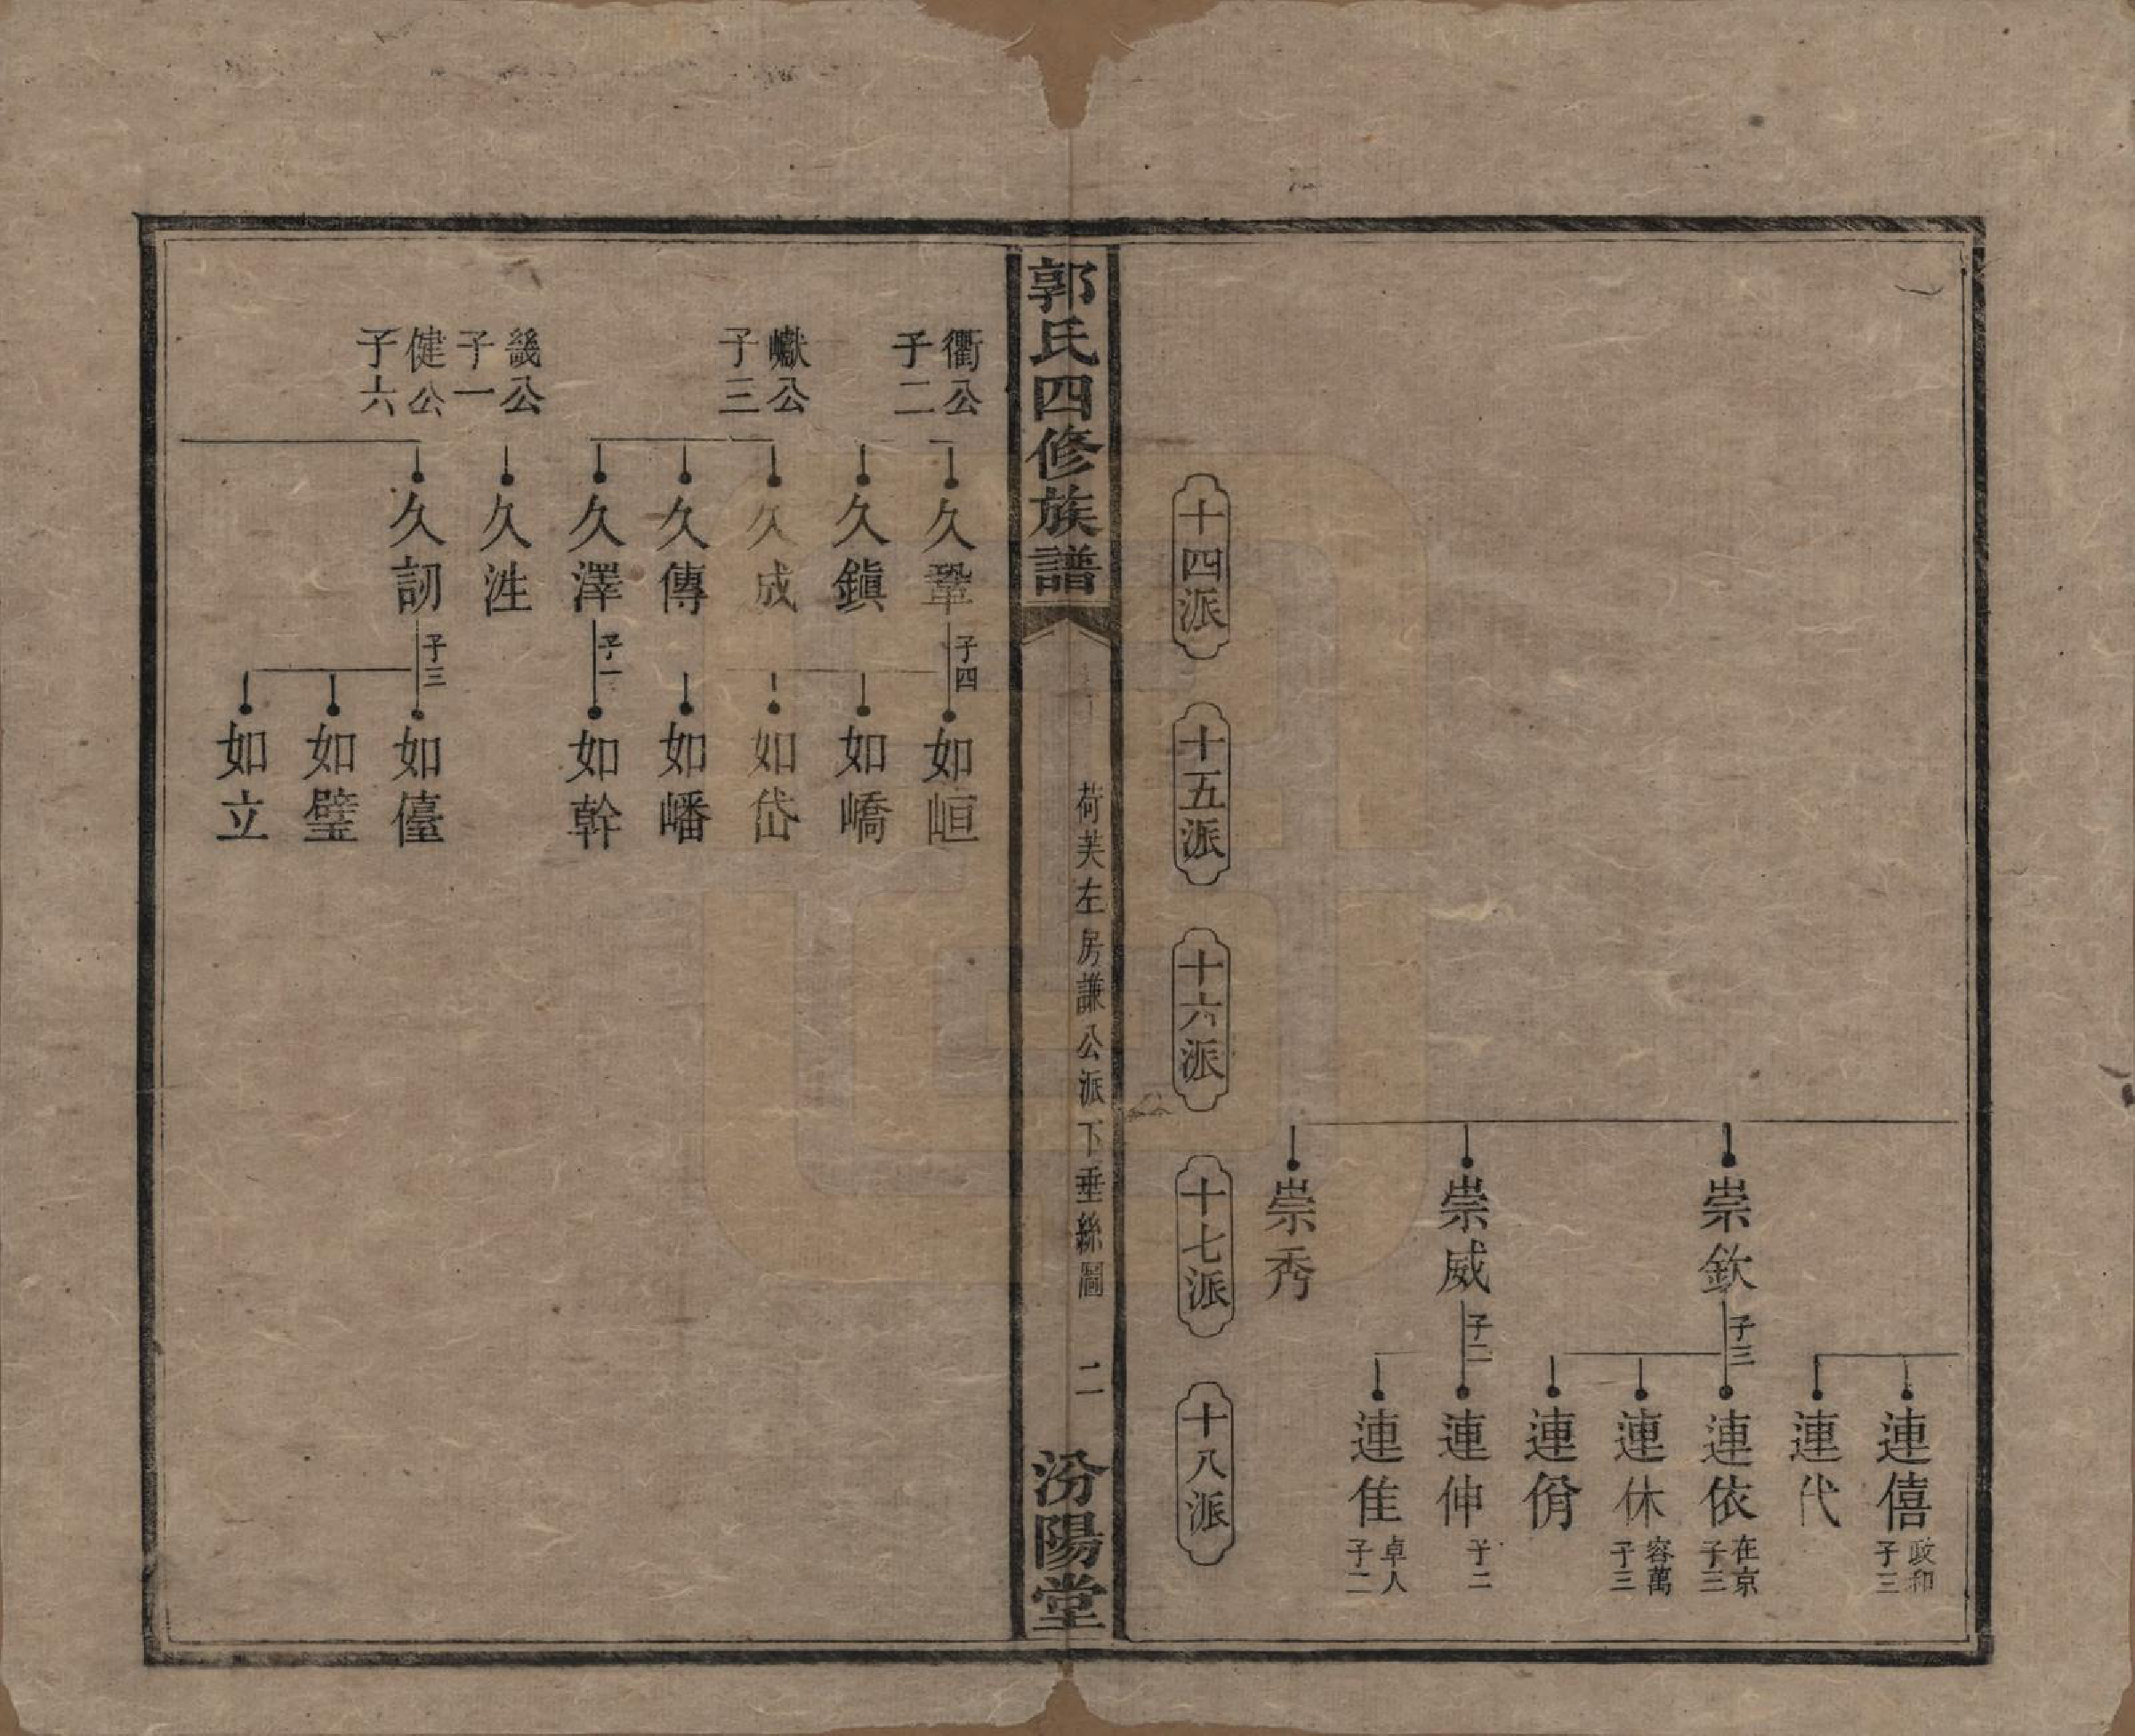 連僖
政和
子三
連代
崇欽
子三
連依
在京
子三
連休
容萬
子三
連佾
崇威
子二
連仲
子二
連隹
卓人
子二
崇秀
十四派
十五派
十六派
十七派
十八派
郭氏四修族譜
荷芙左房謙公派下垂絲圖
二
汾陽堂
衢公
子二
久鞏
子四
如峘
久鎮
如嶠
巘公
子三
久成
如岱
久傳
如嶓
久澤
子一
如幹
畿公
子一
久泩
健公
子六
久訒
子三
如儓
如璧
如立